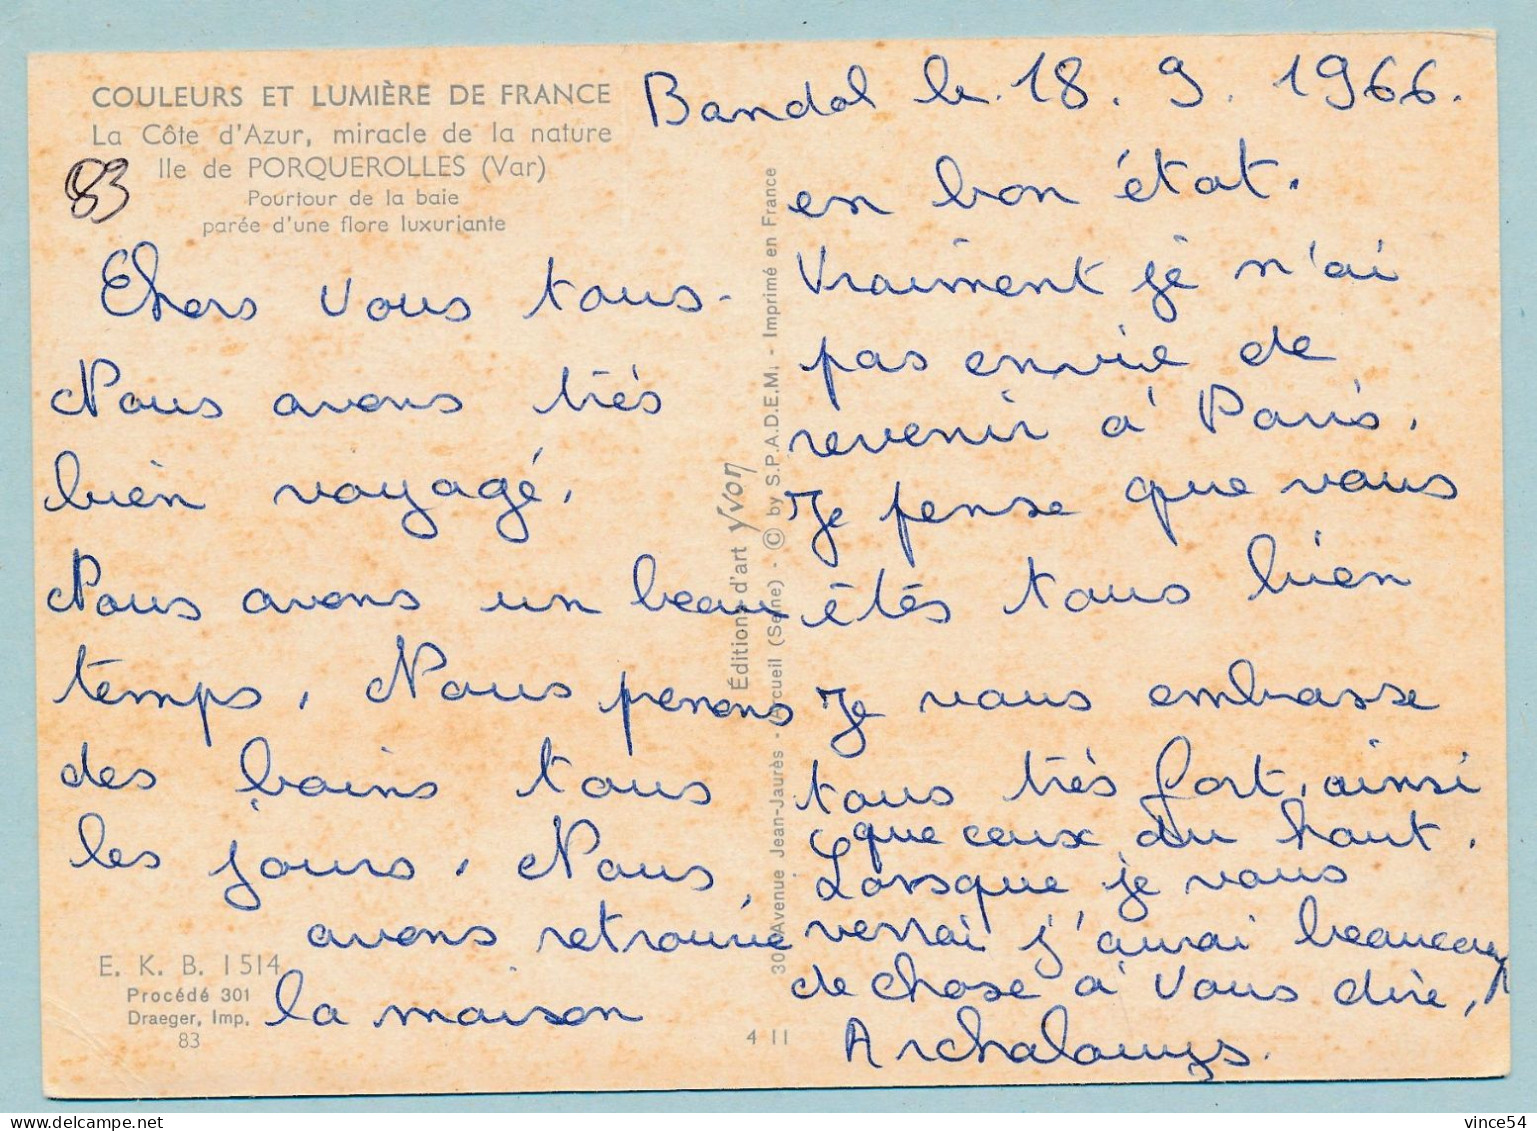 COULEURS ET LUMIÈRE DE FRANCE
La Côte d'Azur, miracle de la nature
Ile de PORQUEROLLES (Var)
Pourtour de la baie
parée d'une flore luxuriante
83
Bandol le. 18. 9. 1966.
Chers vous tous.
Nous avons très
bien voyagé.
Nous avons un beau
temps, Nous prenons
des bains tous
les jours, Nous
avons retrouvé
la maison
en bon état.
Vraiment je n'ai
pas envie de
revenir à Paris.
Je pense que vous
étés tous bien
Je vous embrasse
tous très fort, ainsi
que ceux du haut.
Lorsque je vous
verrai j'aurai beaucoup
de chose à vous dire,
Archalouys.
Éditions d'art Yvon
30, Avenue Jean-Jaurès - Arcueil (Seine) - © by S.P.A.D.E.M. - Imprimé en France
E. K. B. 1514
Procédé 301
Draeger, Imp.
83
4 11
delcampe.net
vince54